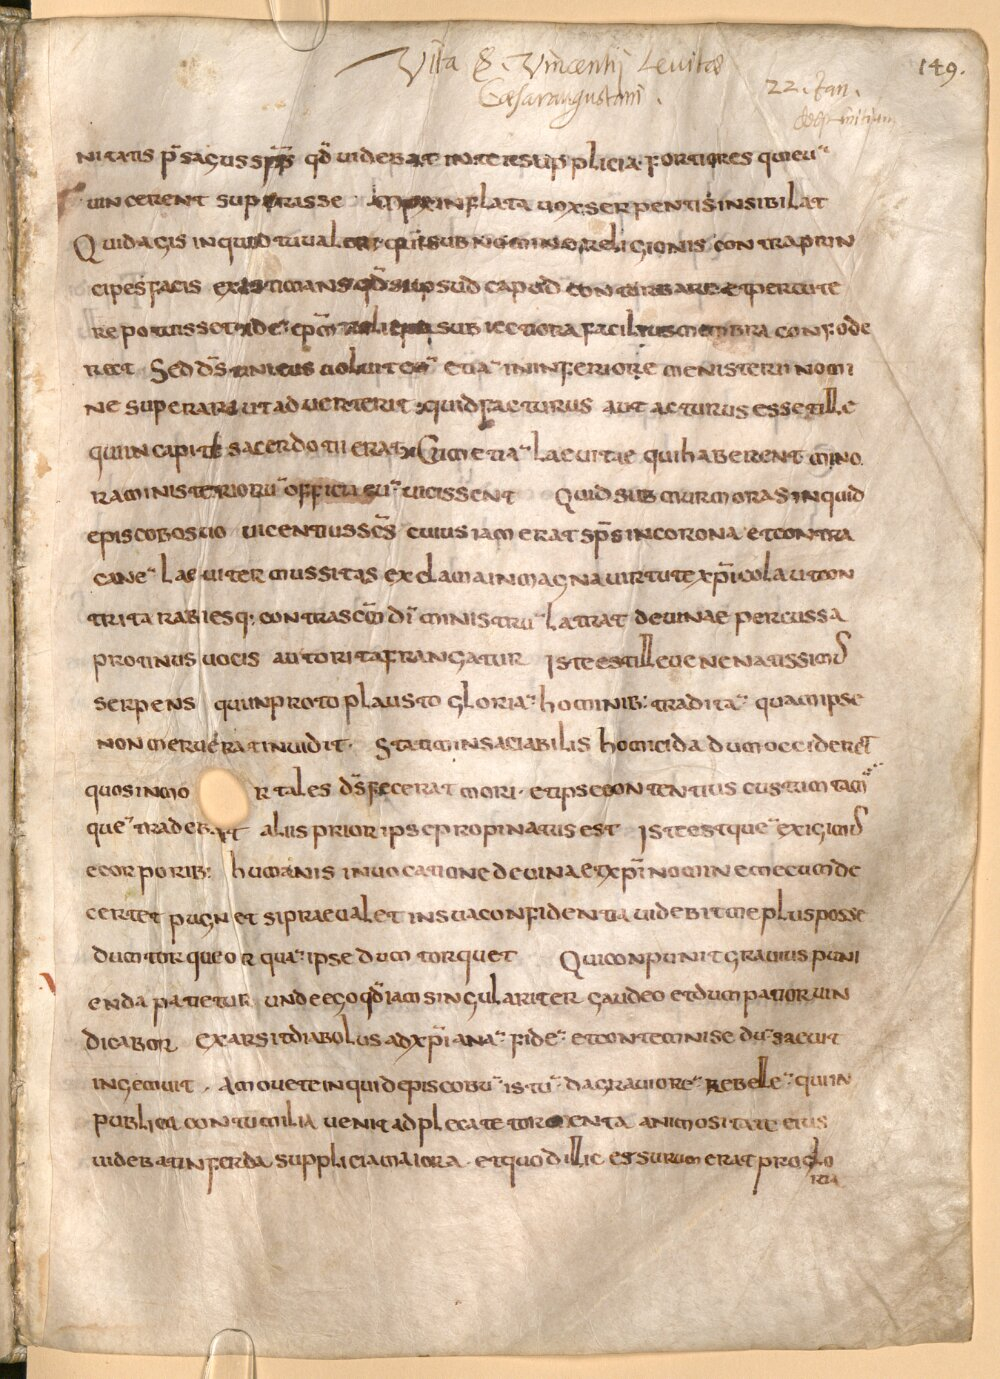 Vita S. Vincentij Levitae
Caesaraugustani.
22. Jan.
149.
nitatis p̄sagus sp̄s qd̄ videbat inter supplicia fortiores qui eū
vincerent superasse Mox inflata vox serpentis insibilat
Quid agis inquid tu valeri qui sub nomine religionis contra prin
cipes facis existimans qd̄ suo sud capud conturbare et perdite
re potuisset
ret Sed dn̄s unicus voluit eū etiā in inferiore menisterii nomi
ne superari ut adverterit quid facturus aut acturus esset ille
qui in capite sacerdotii erat Cum etiā laevitae qui haberent mino
ra ministeriorū officii suī vicissent Quid submurmoras inquid
episcobo suo vicentius sc̄s cuius iam erat sp̄s in corona et contra
canē laeviter mussitas exclama in magna virtute xp̄i cola ut con
trita rabiesq; contra sc̄m dī ministrū latrat devinae percussa
protinus vocis autorita frangatur Iste est ille venenatissimus
serpens qui in protoplausto gloriā hominib: traditā quam ipse
non meruerat invidit. Statim insaciabilis homicida dum occideret
quos inmo rtales dn̄s fecerat mori. et ipse contentius custum tam
quē tradebat aliis prior ipse propinatus est Iste est quē exigimus
e corporib: humanis invocatione devina et xp̄i nomine mecum de
certet pugnet si praevalet in sua confidentia videbit me plus posse
dum torqueor quā ipse dum torquet Qui conpunit gravius puni
enda patietur unde ego qd̄ iam singulariter gaudeo et dum patior vin
dicabor exarsit diabolus ad xp̄ianā fidē et contemni se dū saevit
ingemuit. Amovete inquid episcobū istū da graviorē rebellē qui in
publica contumilia venit adplecate tormenta animositate eius
videbat inferda supplicia maiora. et quod illic essurum erat pro glo
ria